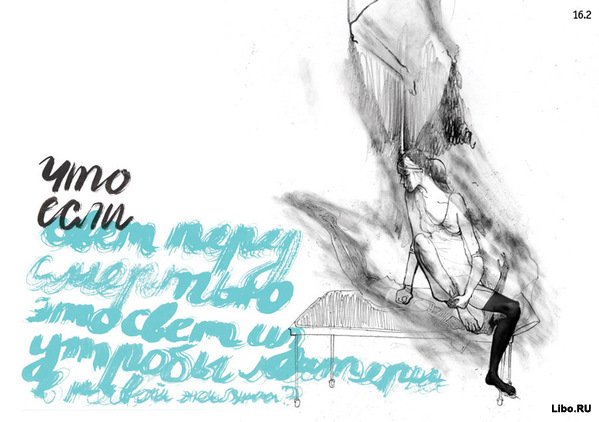 16.2
что
если
свет перед
смертью
это свет из
утробы матери
в новой жизни?
Libo.RU